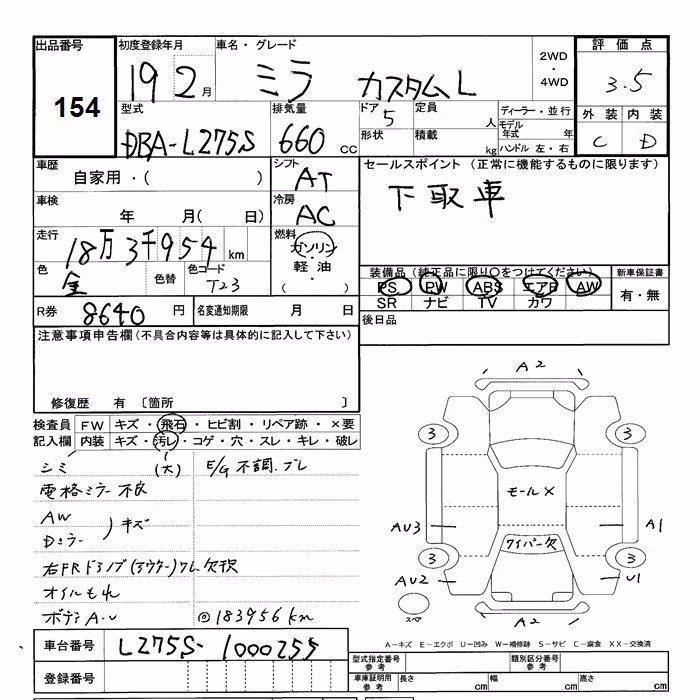 出品番号 初度登録年月 車名・グレード 2WD・4WD 評価点
154 19 2月 ミラ カスタムL 3.5
型式 排気量 ドア 定員 ディーラー・並行 外装 内装
DBA-L275S 660 CC 5 人 モデル年式 年 C D
形状 積載 kg ハンドル 左・右
車歴 シフト セールスポイント (正常に機能するものに限ります)
自家用・( ) AT 下取車
車検 冷房
年 月( 日) AC
走行 燃料
18万3千954 km ガソリン・軽油・( )
色 色替 色コード 装備品 (純正品に限り〇をつけてください) 新車保証書
金 T23 PS PW ABS エアB AW 有・無
SR ナビ TV カワ
R券 8640 円 名変通知期限 月 日 後日品
注意事項申告欄(不具合内容等は具体的に記入して下さい)
修復歴 有 〔箇所 〕
検査員 FW キズ・飛石・ヒビ割・リペア跡・×要
記入欄 内装 キズ・汚レ・コゲ・穴・スレ・キレ・破レ
シミ (大) E/G不調.ブレ
電格ミラー不良
AW
Dミラー )キズ
右FRドアノブ(アウター)フレ欠損
オイルもれ
ボディA.U ◎183956km
A2
3 3
モール×
AU3 A1
ワイパー欠
3 3
AU2 U1
スペア
A2
A-キズ E-エクボ U-凹み W-補修跡 S-サビ C-腐食 XX-交換済
車台番号 L275S-1000255
登録番号
型式指定番号 参考 類別区分番号 参考
車庫証明用 参考 長さ cm 幅 cm 高さ cm